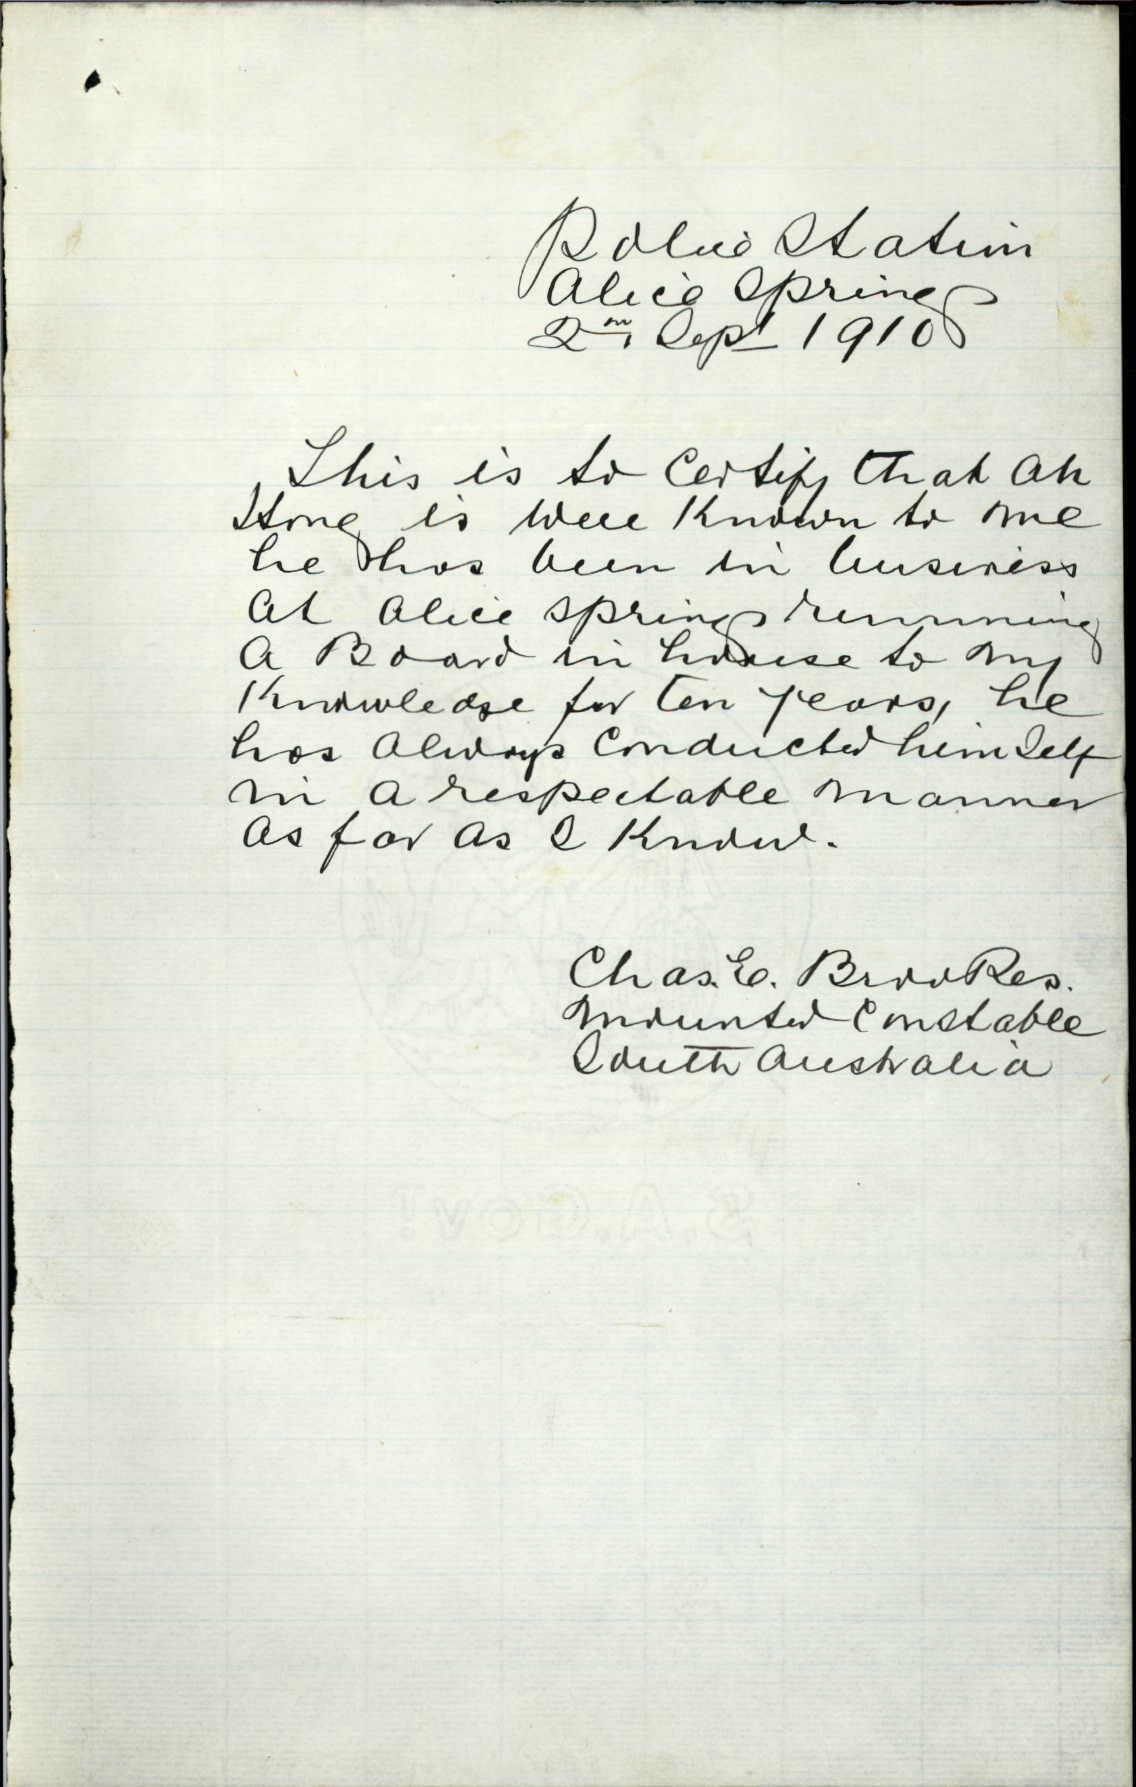 Police Station
Alice Springs
2nd Sept 1910
This is to Certify that Ah
Hong is well Known to me
he has been in business
at Alice Springs running
a Board in house to my
Knowledge for ten years, he
has always conducted himself
in a respectable manner
as far as I Know.
Chas. E. Brookes.
Mounted Constable
South Australia
S.A.GOVT